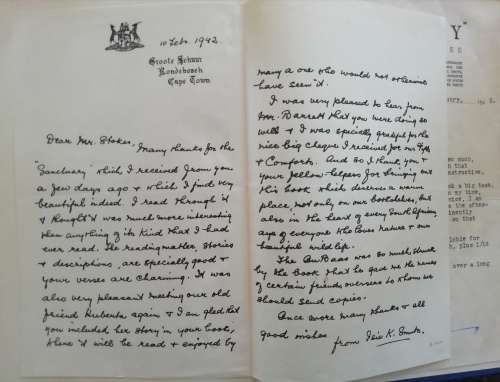 10 Feb. 1942.
Groote Schuur
Rondebosch
Cape Town
Dear Mr. Stokes.
Many thanks for the
"Sanctuary" which I received from you
a few days ago & which I find very
beautiful indeed. I read through it
& thought it was much more interesting
than anything of its kind that I had
ever read. The reading matter, stories
& descriptions, are specially good &
your verses are charming. It was
also very pleasant meeting our old
friend Huberta again & I am glad that
you included her story in your book,
where it will be read & enjoyed by
many a one who would not otherwise
have seen it.
I was very pleased to hear from
Mr. Barrett that you were doing so
well & I was specially grateful for the
nice big cheque I received for our Gifts
& Comforts. And so I thank you &
your fellow-helpers for bringing out
this book which deserves a warm
place, not only on our bookshelves, but
also in the heart of every South African
aye of everyone who loves nature & our
beautiful wild life.
The Ou Baas was so much struck
by the book that he gave me the names
of certain friends overseas to whom we
should send copies.
Once more many thanks & all
good wishes
from Isie K. Smuts.
Y"
so much,
n that
nstructive.
a big task,
n my time,
vice, I am
s the after-
incently
so that
table for
plus 1/10
over a long